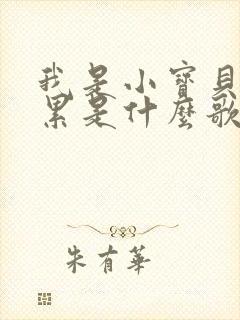 我是小寶貝
累是什麼歌
朱有華